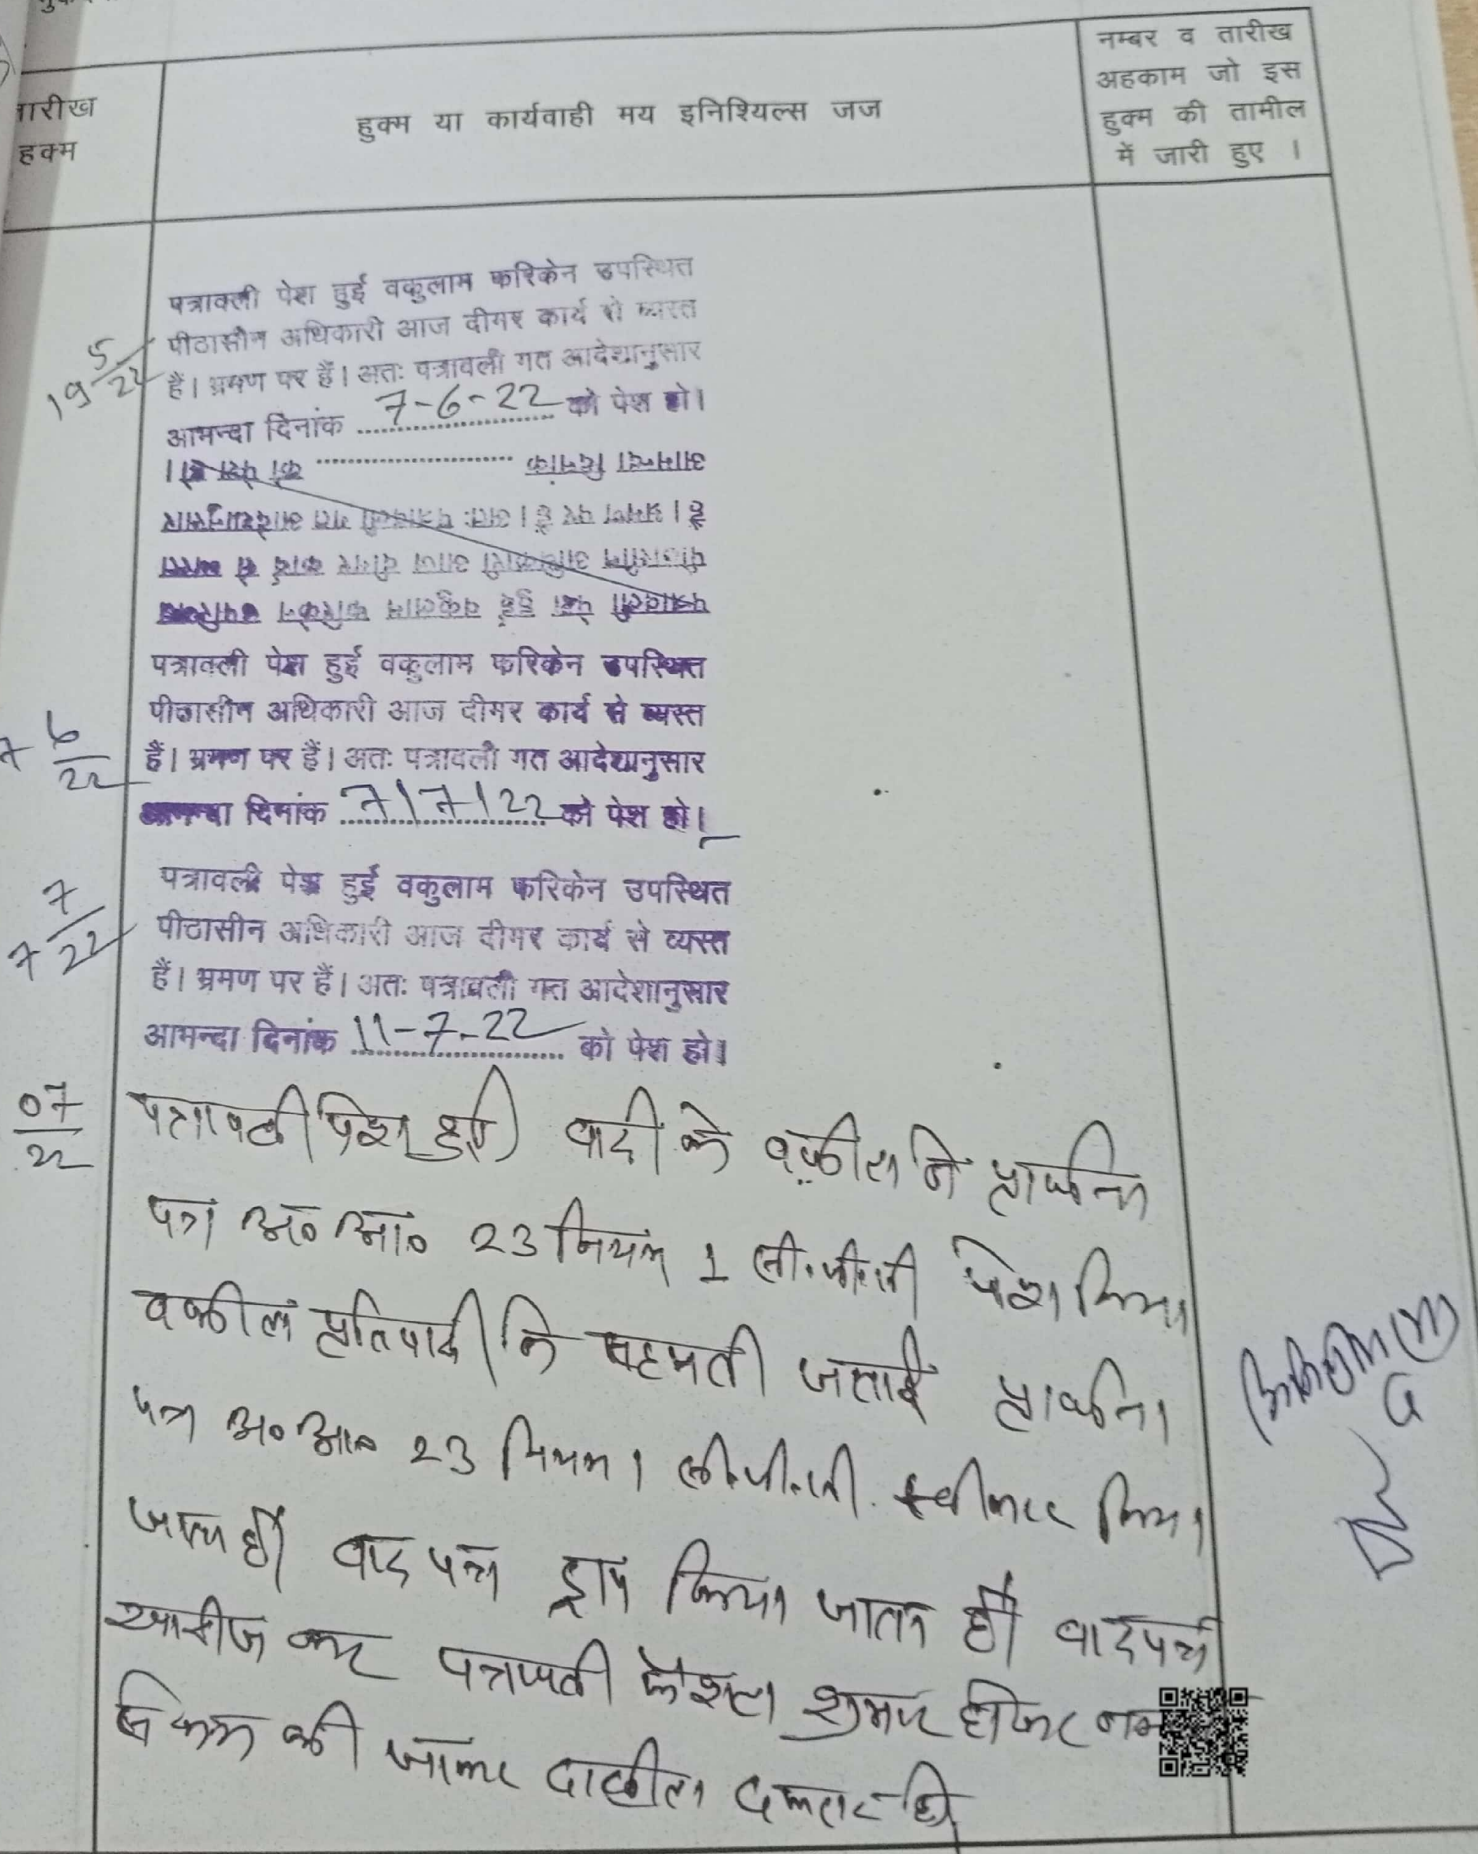 तारीख
हुक्म
हुक्म या कार्यवाही मय इनिश्यिल्स जज
नम्बर व तारीख
अहकाम जो इस
हुक्म की तामील
में जारी हुए ।
19 5/22
पत्रावली पेश हुई वकुलाम फरिकेन उपस्थित
पीठासीन अधिकारी आज दीगर कार्य से व्यस्त
हैं। भ्रमण पर हैं। अतः पत्रावली गत आदेशानुसार
आमन्दा दिनांक 7-6-22 को पेश हो।
आमन्दा दिनांक .................... को पेश हो।
हैं। भ्रमण पर हैं। अतः पत्रावली गत आदेशानुसार
पीठासीन अधिकारी आज दीगर कार्य से व्यस्त
पत्रावली पेश हुई वकुलाम फरिकेन उपस्थित
पत्रावली पेश हुई वकुलाम फरिकेन उपस्थित
7 6/22
पीठासीन अधिकारी आज दीगर कार्य से व्यस्त
हैं। भ्रमण पर हैं। अतः पत्रावली गत आदेशानुसार
आमन्दा दिनांक 7/7/22 को पेश हो।
7 7/22
पत्रावली पेश हुई वकुलाम फरिकेन उपस्थित
पीठासीन अधिकारी आज दीगर कार्य से व्यस्त
हैं। भ्रमण पर हैं। अतः पत्रावली गत आदेशानुसार
आमन्दा दिनांक 11-7-22 को पेश हो।
07/22
पत्रावली पेश हुई वादी के वकील ने प्रार्थना
पत्र अ० आ० 23 नियम 1 सी.पी.सी पेश किया
वकील प्रतिवादी ने सहमती जताई प्रार्थना
पत्र अ० आ० 23 नियम 1 सी.पी.सी. स्वीकार किया
जाता है वाद पत्र ड्राप किया जाता है वादपत्र
खारीज कर पत्रावली फैशला शुमार होकर
की जाकर दाखील दफ्तर हो